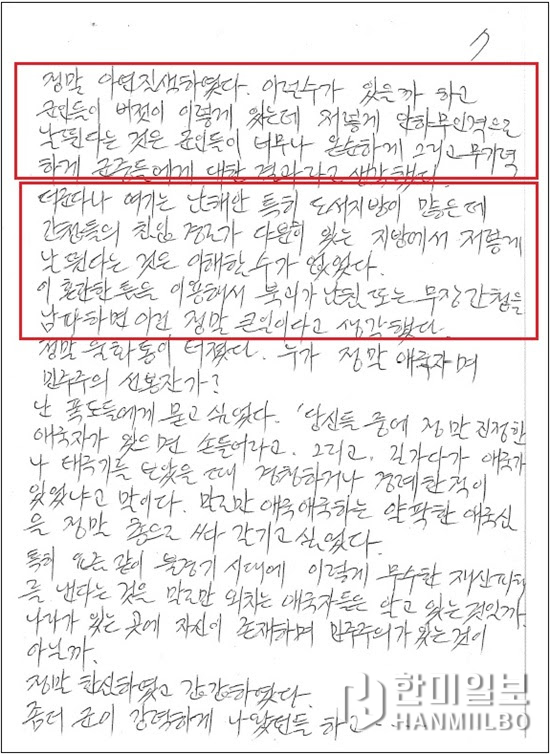 7
정말 아연질색하였다. 이런수가 있을까 하고
군인들이 버젓이 이렇게 있는데 저렇게 안하무인격으로
날뛴다는 것은 군인들이 너무나 온순하게 그리고 무기력
하게 군중들에게 대한 결과라고 생각했다.
더군다나 여기는 남해안 특히 도서지방이 많은데
간첩들의 침입 경로가 다분히 있는 지방에서 저렇게
난 뛴다는 것은 이해할 수가 없었다.
이 혼란한 틈을 이용해서 북괴가 난침 또는 무장간첩을
남파하면 이건 정말 큰일이다고 생각했다.
정말 울화통이 터졌다. 누가 정말 애국자며
민주주의 선봉잔가?
난 폭도들에게 묻고 싶었다. '당신들 중에 정말 진정한
애국자가 있으면 손들어라고. 그리고, 길가다가 애국가
나 태극기를 보았을 때 경청하거나 경례한적이
있었냐고 말이다. 말로만 애국애국하는 얄팍한 애국심
을 정말 총으로 싸 갈기고 싶었다.
특히 요즘 같이 불경기 시대에 이렇게 무수한 재산피해
를 낸다는 것을 말로만 외치는 애국자들은 알고 있는 것일까.
나라가 있는 곳에 자신이 존재하며 민주주의가 있는 것이
아닐까.
정말 한심하였고 갑갑하였다.
좀더 군이 강력하게 나왔던들 하고
한미일보
HANMIILBO